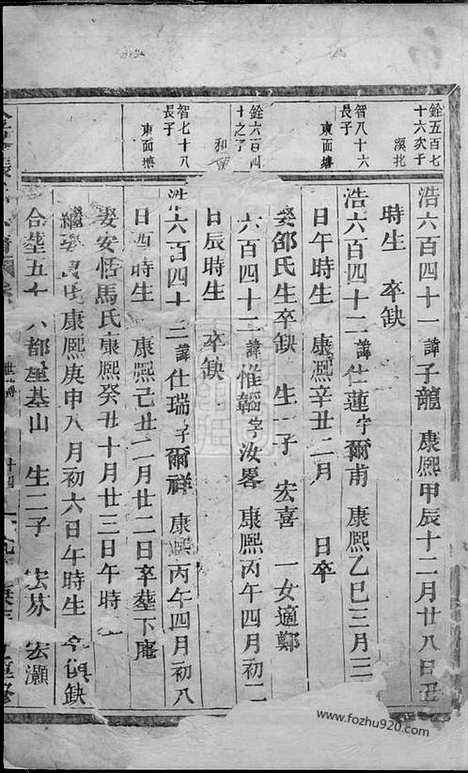 銓五百七
十六次子
溪北
浩六百四十一諱子龍 康熙甲辰十二月廿八日丑
時生 卒缺
智八十六
長子
東面塘
浩六百四十二諱仕蓮字爾甫 康熙乙巳三月三
日午時生 康熙辛丑二月 日卒
娶邵氏生卒缺 生一子 宏喜 一女適鄭
銓六百四
十之子
和
六百四十二諱惟韜字汝畧 康熙丙午四月初二
日辰時生 卒缺
智七十八
長子
東面塘
浩六百四十三諱仕瑞字爾祥 康熙丙午四月初八
日酉時生 康熙己丑二月廿二日卒塟下庵
娶安恬馬氏康熙癸丑十月廿三日午時
繼娶 氏康熙庚申八月初六日午時生 卒俱缺
合塟五十八都星基山 生二子 宏芬 宏灝
www.fozhu920.com